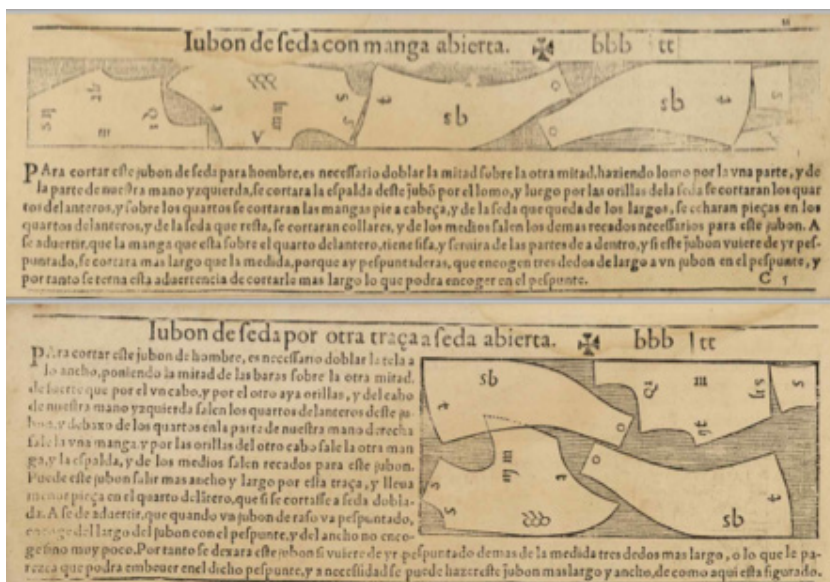 Iubon de seda con manga abierta. ✠ bbb tt
PAra cortar este jubon de seda para hombre, es necessario doblar la mitad sobre la otra mitad, haziendo lomo por la vna parte, y de
la parte de nuestra mano yzquierda, se cortara la espalda deste jubõ por el lomo, y luego por las orillas dela seda se cortaran los quar
tos delanteros, y sobre los quartos se cortaran las mangas pie a cabeça, y de la seda que queda de los largos, se echaran pieças en los
quartos delanteros, y de la seda que resta, se cortaran collares, y de los medios salen los demas recados necessarios para este jubon. A
se aduertir, que la manga que esta sobre el quarto delantero, tiene sisa, y seruira de las partes de a dentro, y si este jubon vuiere de yr pes-
puntado, se cortara mas largo que la medida, porque ay pespuntaderas, que encogen tres dedos de largo a vn jubon en el pespunte, y
por tanto se terna esta aduertencia de cortarle mas largo lo que podra encoger en el pespunte.
Iubon de seda por otra traça a seda abierta. ✠ bbb tt
PAra cortar este jubon de hombre, es necessario doblar la tela a
lo ancho, poniendo la mitad de las baras sobre la otra mitad.
de suerte que por el vn cabo, y por el otro aya orillas, y del cabo
de nuestra mano yzquierda salen los quartos delanteros deste ju-
bon, y debaxo de los quartos en la parte de nuestra mano derecha
sale la vna manga, y por las orillas del otro cabo sale la otra man
ga, y la espalda, y de los medios salen recados para este jubon.
Puede este jubon salir mas ancho y largo por esta traça, y lleua
menor pieça en el quarto delãtero, que si se cortasse a seda dobla-
da. A se de aduertir, que quando vn jubon de raso va pespuntado,
encoge del largo del jubon con el pespunte, y del ancho no enco-
ge sino muy poco. Por tanto se dexara este jubon si vuiere de yr pespuntado demas de la medida tres dedos mas largo, o lo que le pa-
rezca que podra embeuer en el dicho pespunte, y a necessidad se puede hazer este jubon mas largo y ancho, de como aqui esta figurado.
sb
sb
sb
sb